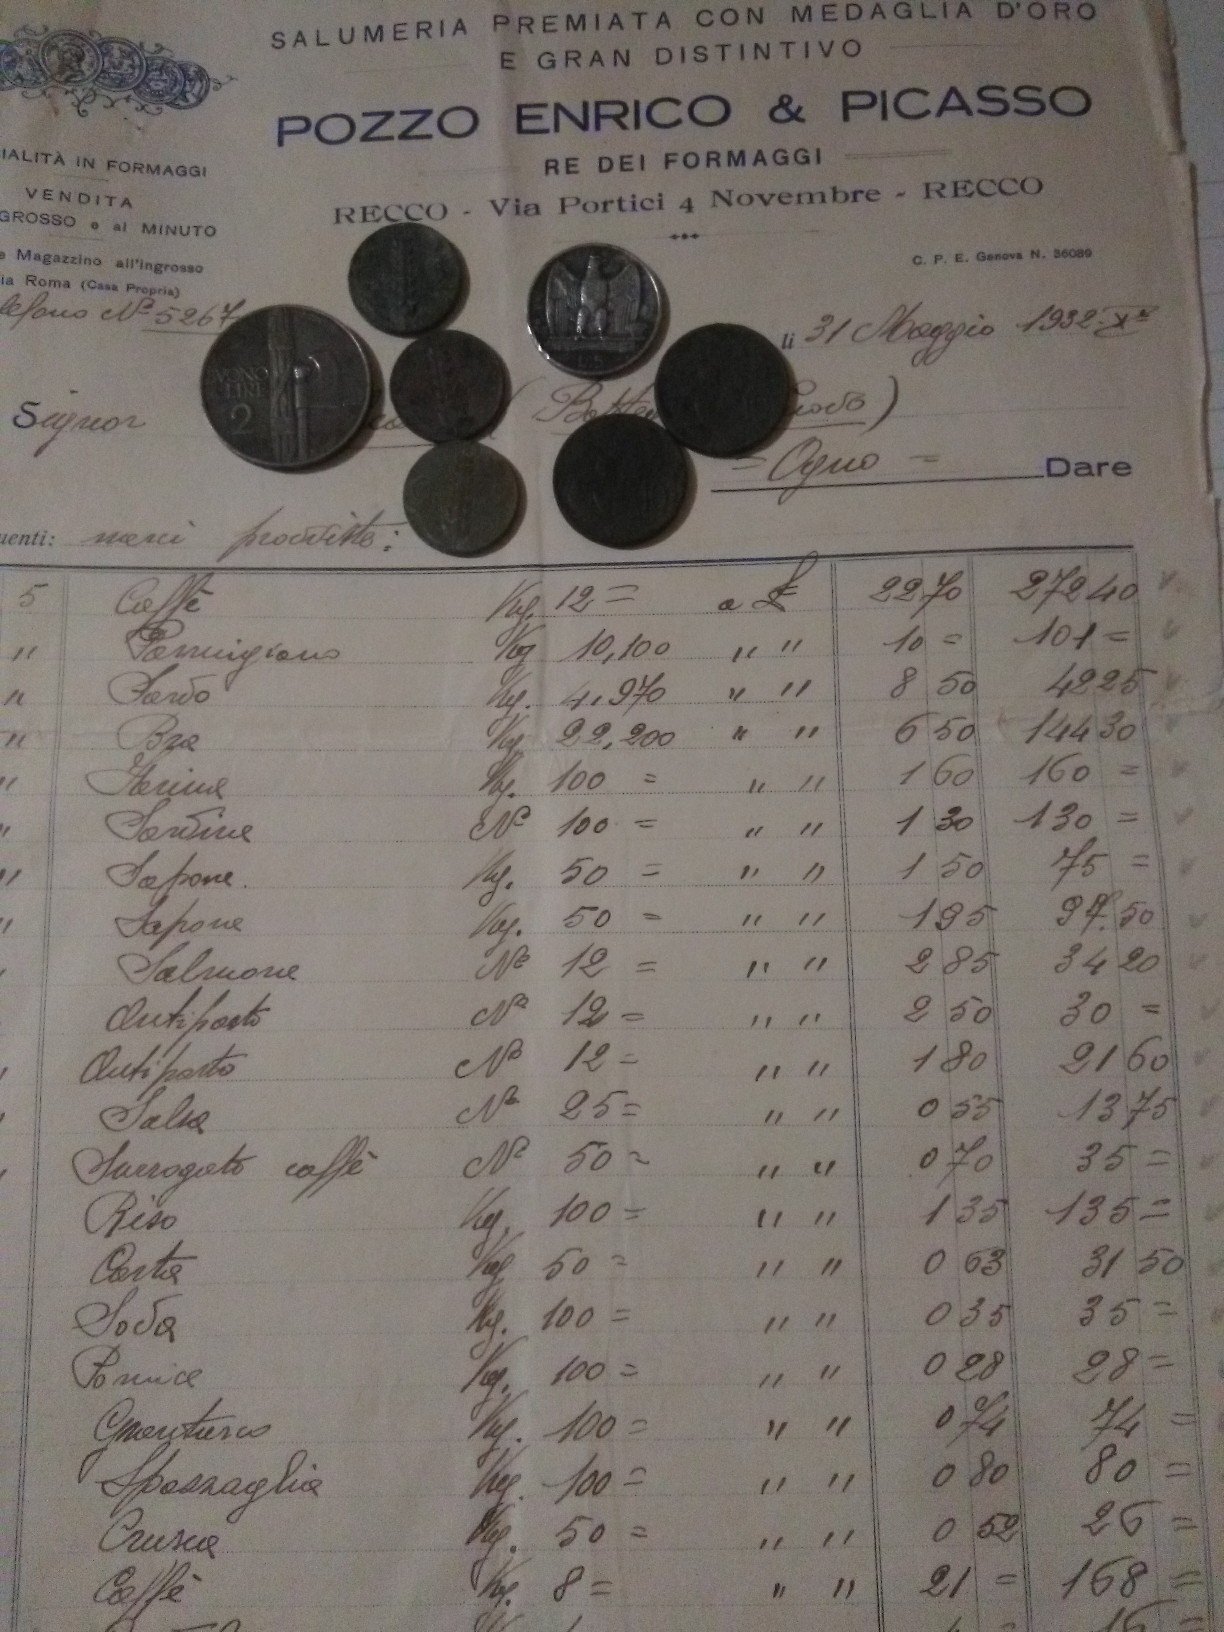 SALUMERIA PREMIATA CON MEDAGLIA D'ORO
E GRAN DISTINTIVO
POZZO ENRICO & PICASSO
RE DEI FORMAGGI
RECCO - Via Portici 4 Novembre - RECCO
C. P. E. Genova N. 36089
IALITÀ IN FORMAGGI
VENDITA
GROSSO e al MINUTO
e Magazzino all'ingrosso
ia Roma (Casa Propria)
lefono Nº 5267
li 31 Maggio 1932 Xº
BUONO
LIRE
2
L.5
Signor
= Ogno = Dare
uenti: merci provviste:
5 Caffè Kg. 12 = a £ 22 70 272 40
" Parmigiano Kg 10,100 " " 10 = 101 =
" Sardo Kg. 4,970 " " 8 50 42 25
" Bra Kg. 22,200 " " 6 50 144 30
" Farina Kg. 100 = " " 1 60 160 =
" Sardine Nº 100 = " " 1 30 130 =
" Sapone Kg. 50 = " " 1 50 75 =
" Sapone Kg. 50 = " " 1 95 97.50
" Salmone Nº 12 = " " 2 85 34 20
Antipasto Nº 12 = " " 2 50 30 =
Antipasto Nº 12 = " " 1 80 21 60
Salsa Nº 25 = " " 0 55 13 75
Surrogato caffè Nº 50 = " " 0 70 35 =
Riso Kg. 100 = " " 1 35 135 =
Carta Kg 50 = " " 0 63 31 50
Soda Kg. 100 = " " 0 35 35 =
Pomice Kg. 100 = " " 0 28 28 =
Granturco Kg. 100 = " " 0 74 74 =
Spezzaglia Kg. 100 = " " 0 80 80 =
Crusca Kg. 50 = " " 0 52 26 =
Caffè Kg. 8 = " " 21 = 168 =